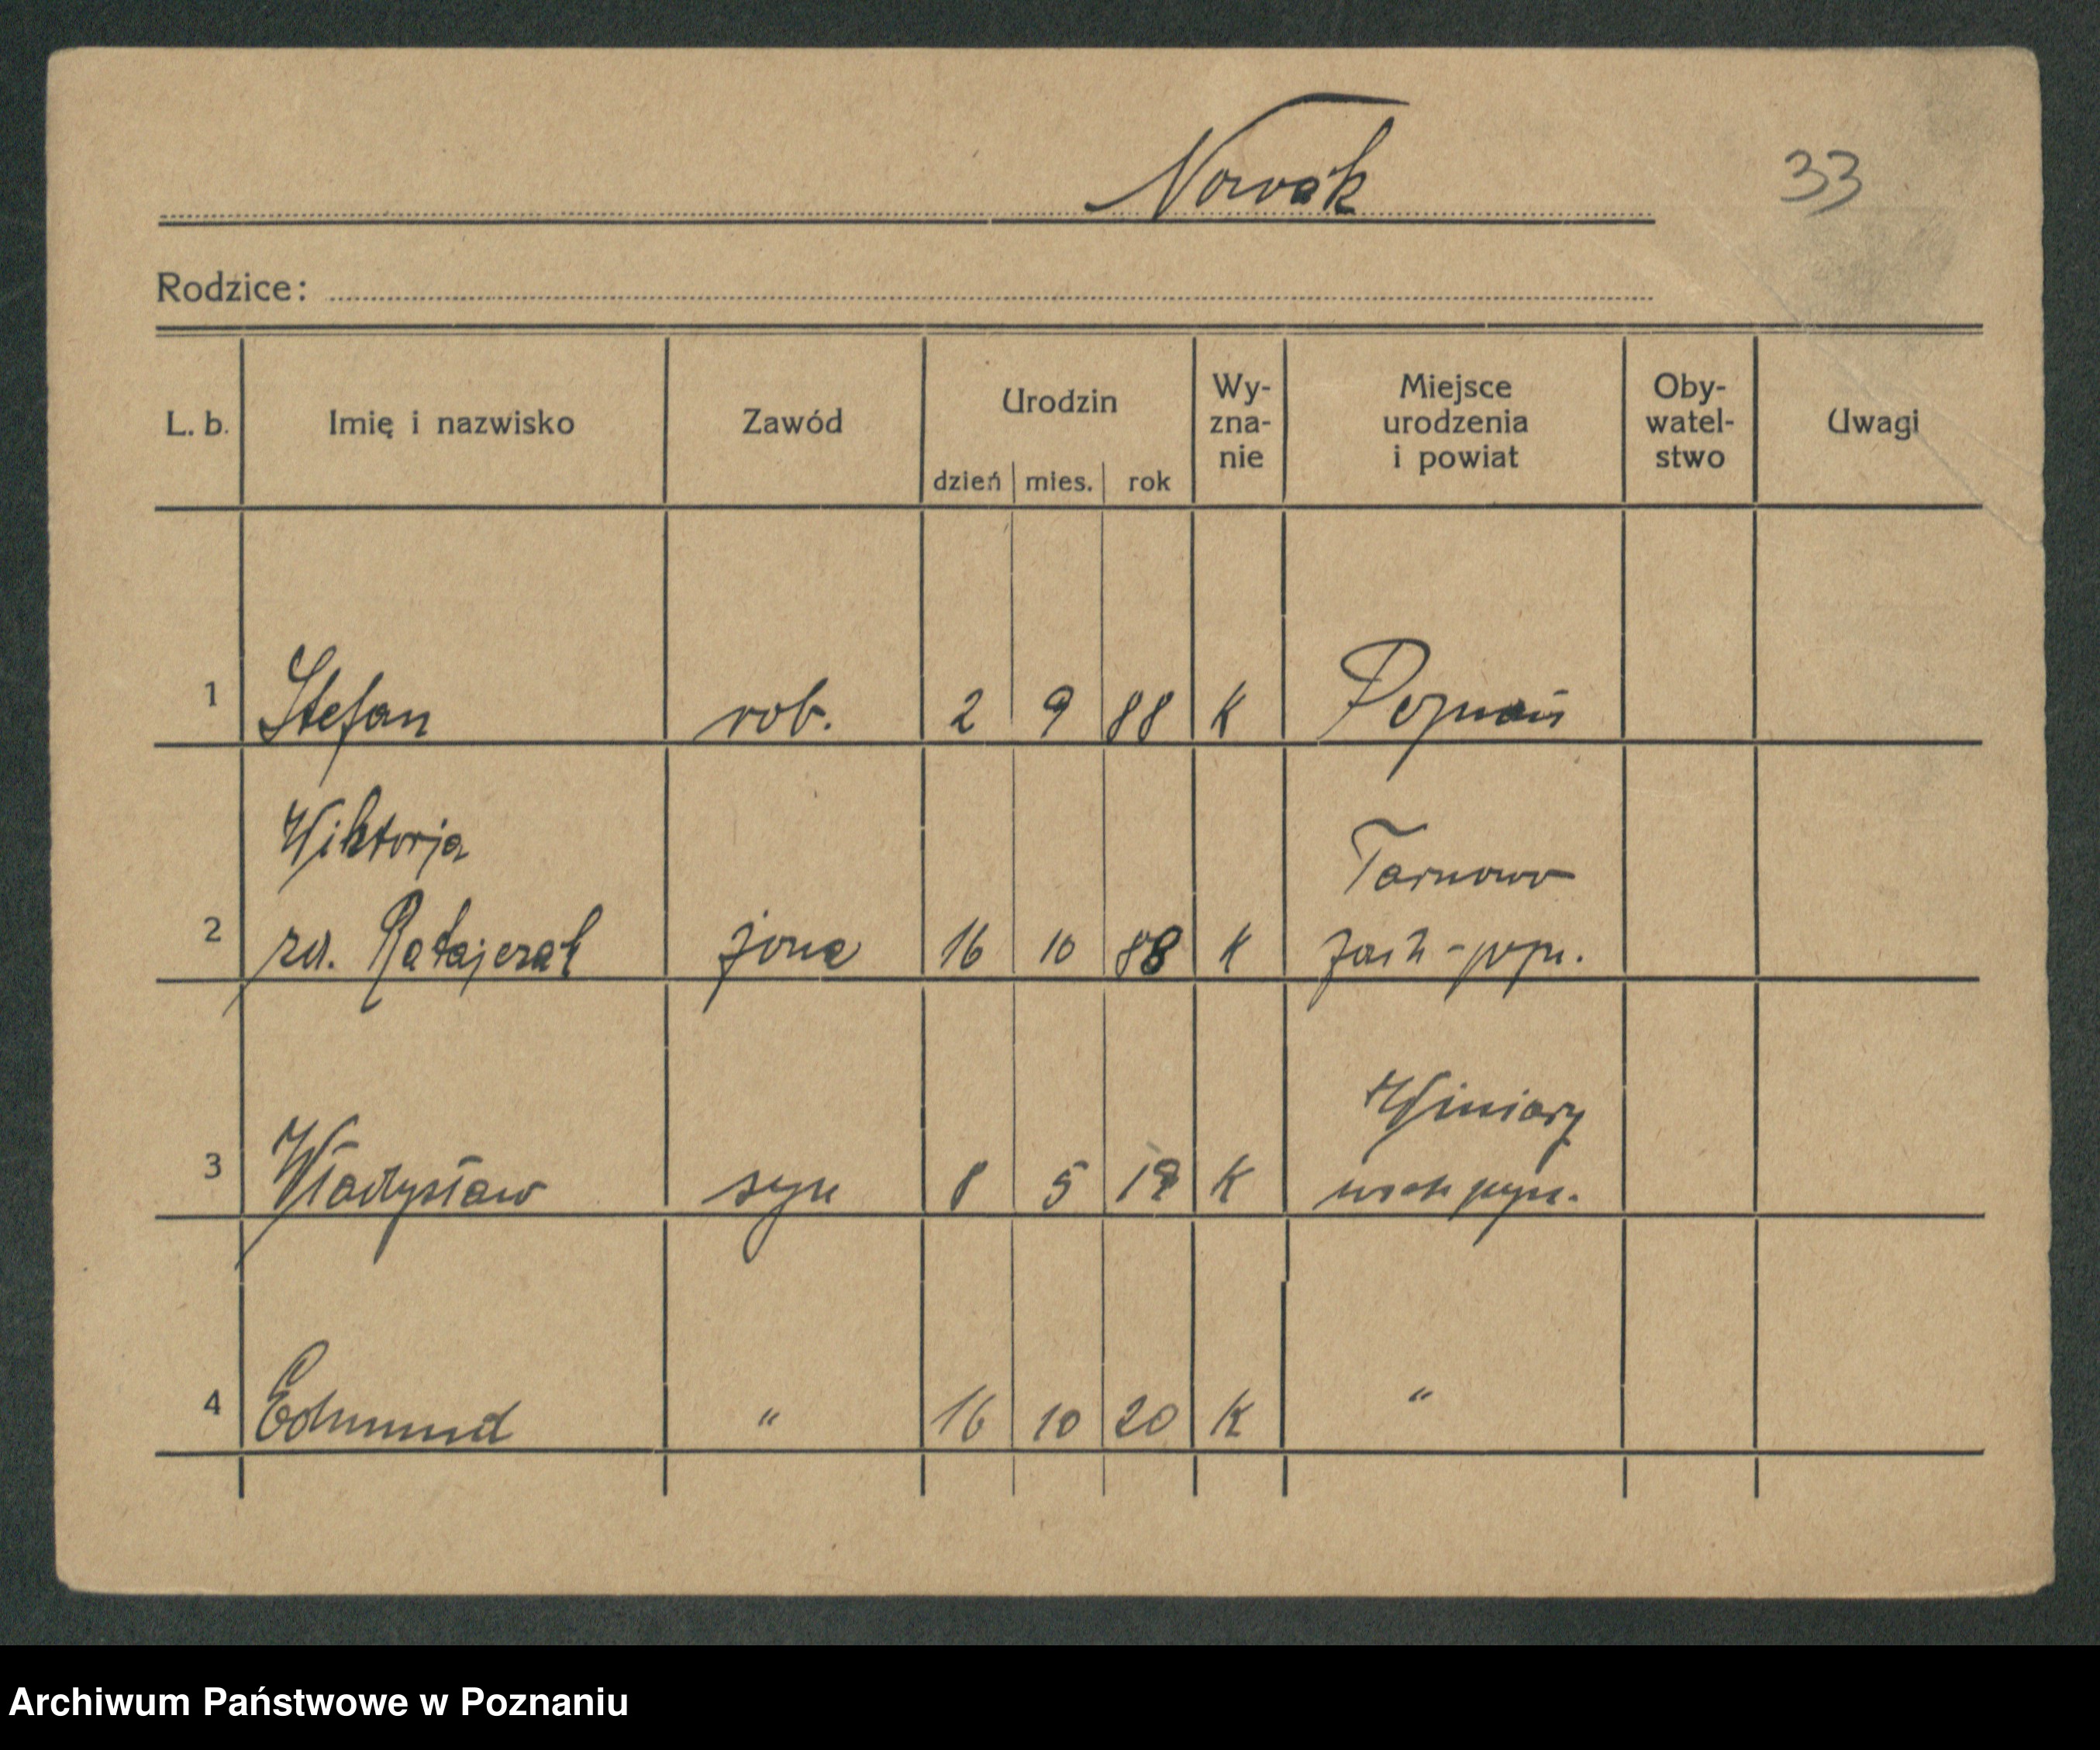 Nowak
33
Rodzice:
L. b.
Imię i nazwisko
Zawód
Urodzin
dzień mies. rok
Wy-
zna-
nie
Miejsce
urodzenia
i powiat
Oby-
watel-
stwo
Uwagi
1 Stefan rob. 2 9 88 K Poznań
Wiktorja
Tarnowo
2 Ratajczak żona 16 10 88 K zach-pozn.
Winiary
3 Władysław syn 8 5 K wsch pozn.
4 Edmund " 16 10 20 K "
Archiwum Państwowe w Poznaniu